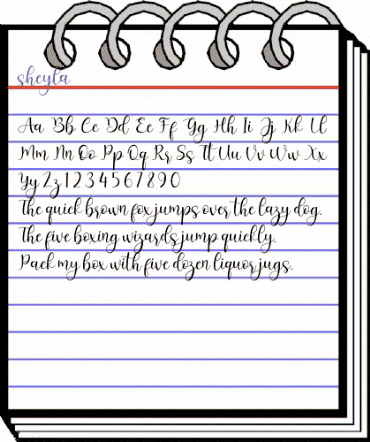 sheyla
Aa Bb Cc Dd Ee Ff Gg Hh Ii Jj Kk Ll
Mm Nn Oo Pp Qq Rr Ss Tt Uu Vv Ww Xx
Yy Zz 1 2 3 4 5 6 7 8 9 0
The quick brown fox jumps over the lazy dog.
The five boxing wizards jump quickly.
Pack my box with five dozen liquor jugs.